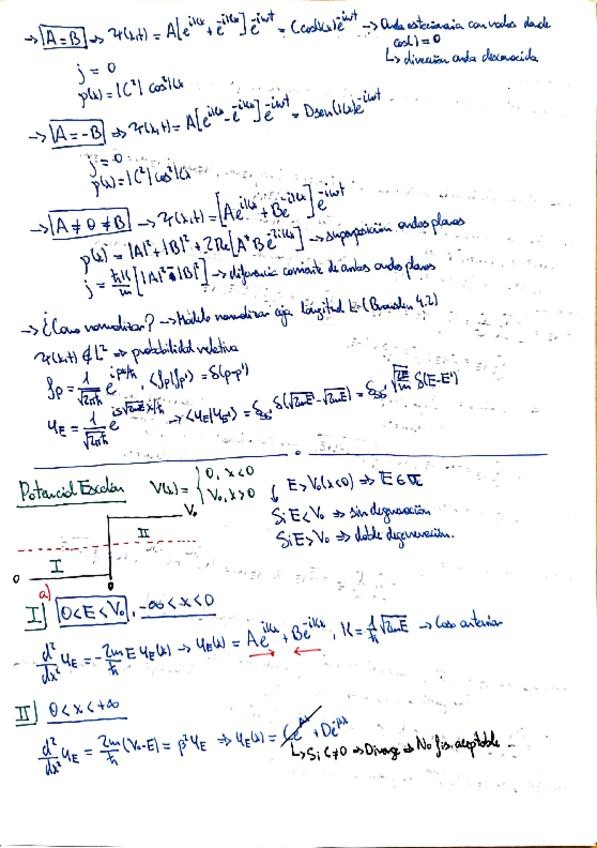 → |A=B| → Ψ(x,t) = A[e^{ikx} + e^{-ikx}]e^{-iωt} = C cos(kx) e^{-iωt} → Onda estacionaria con nodos donde
cos( ) = 0
↳ dirección onda desconocida
j = 0
ρ(x) = |C²| cos²kx
→ |A=-B| ⇒ Ψ(x,t) = A[e^{ikx} - e^{-ikx}]e^{-iωt} = D sen(kx) e^{-iωt}
j = 0
ρ(x) = |C²| cos²kx
→ |A ≠ 0 ≠ B| → Ψ(x,t) = [Ae^{ikx} + Be^{-ikx}] e^{-iωt}
ρ(x) = |A|² + |B|² + 2Re[A*Be^{-2ikx}] → superposición ondas planas
j = ħk/m [|A|² - |B|²] → diferencia corriente de ambas ondas planas
→ ¿Como normalizar? → Modelo normalizar caja longitud L (Bransden 4.2)
Ψ(x,t) ∉ L² ⇒ probabilidad relativa
φp = 1/√2πħ e^{ipx/ħ}, ⟨φp|φp'⟩ = δ(p-p')
Potencial Escalón V(x) = { 0, x<0
V₀, x>0
E > V₀ (x<0) ⇒
Si E<V₀ ⇒ sin degeneración
Si E>V₀ ⇒ doble degeneración.
V₀
II
I
0
0
a)
I] |0<E<V₀|, -∞<x<0
d²/dx² φE = -2m/ħ E φE(x) → φE(x) = Ae^{ikx} + Be^{-ikx}, k = 1/ħ √2mE → Caso anterior
II] 0<x<+∞
d²/dx² φE = 2m/ħ (V₀-E) = ρ²φE ⇒ φE(x) = Ce^{ρx} + De^{-ρx}
↳ Si C≠0 ⇒ Diverge ⇒ No fis. aceptable